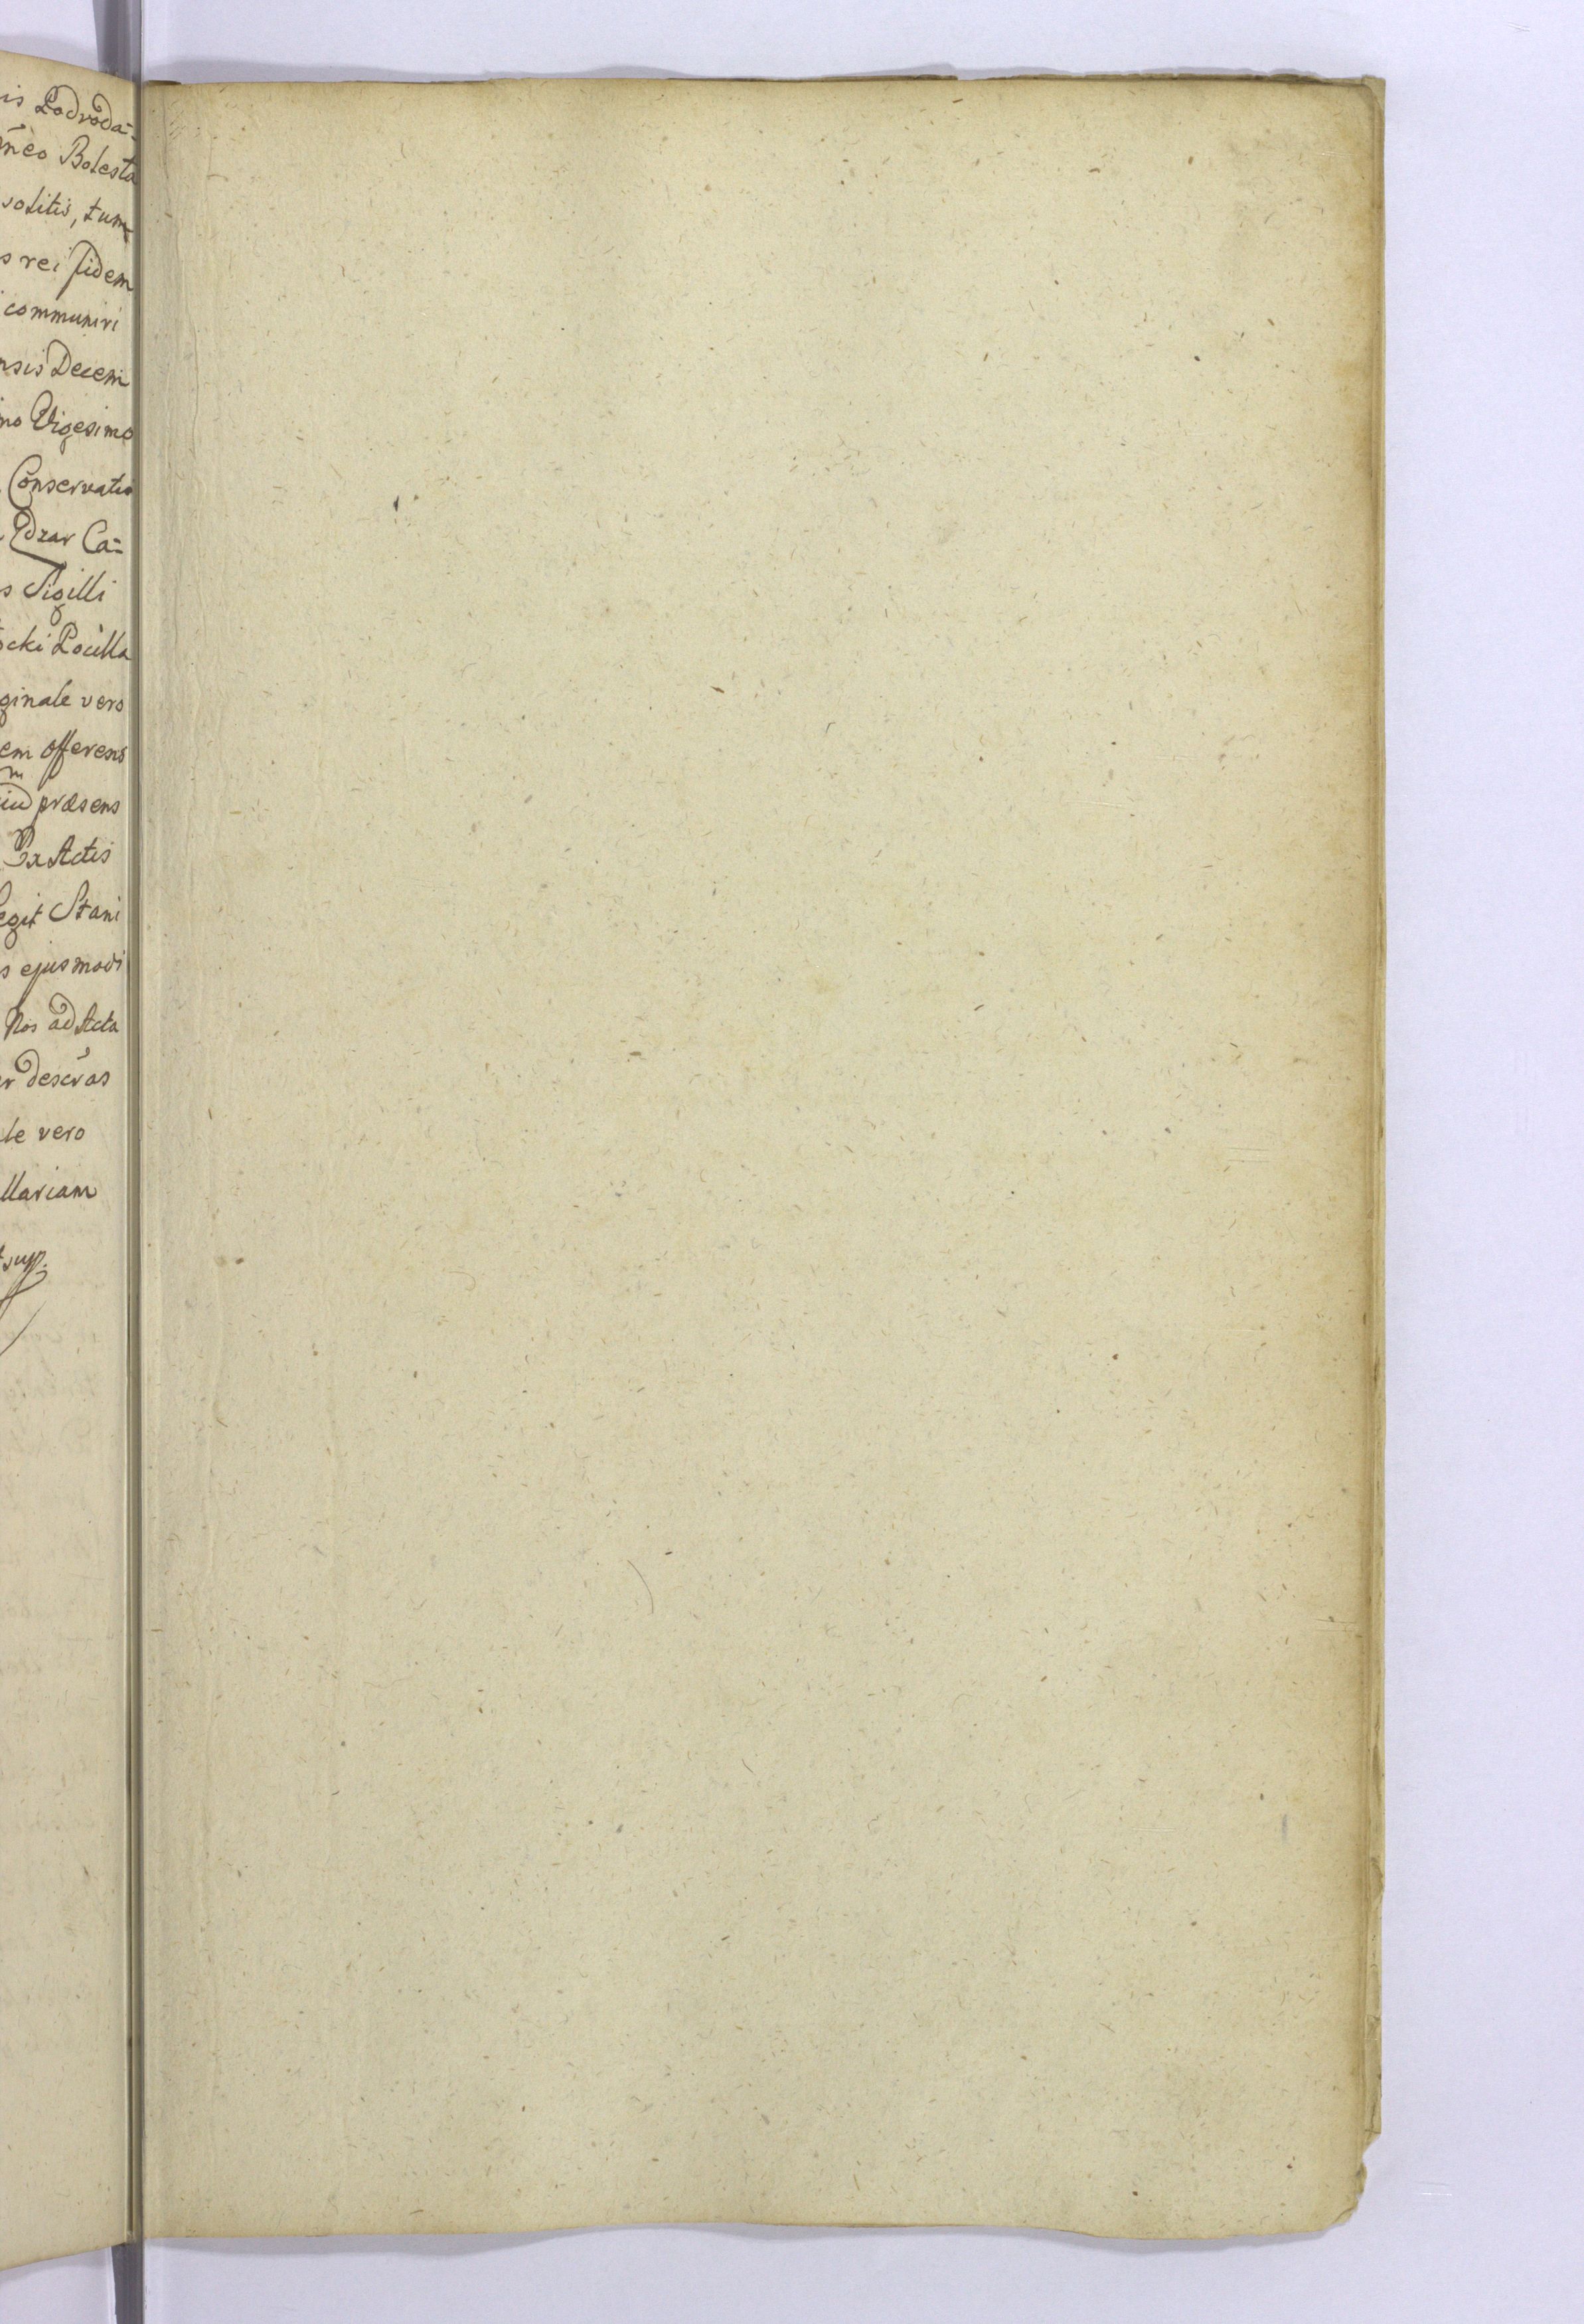 is Podroda-
meo Bolesta
solitis, tum
s rei fidem
communiri
nsis Decem
mo Vigesimo
Conservatis
Ca=
s Sigilli
ocki Pocilla
ginale vero
em offerens
præsens
Ex Actis
egit Stani
s ejusmodi
Nos ad Acta
r
le vero
llariam
sup.